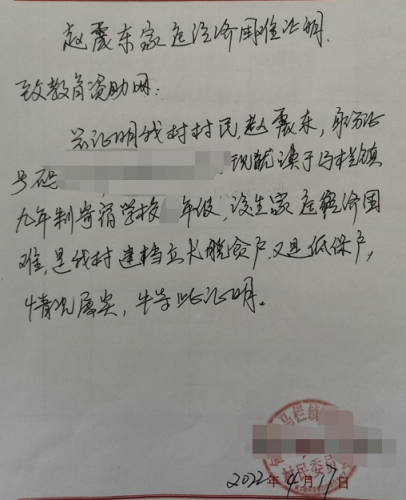 赵震东家庭经济困难证明
致教育资助网：
兹证明我村村民，赵震东，身份证
号码 现就读于马栏镇
九年制寄宿学校 年级，该生家庭经济困
难，是我村建档立卡脱贫户，又是低保户，
情况属实，特此证明。
马栏镇
村民委员
2022年4月17日